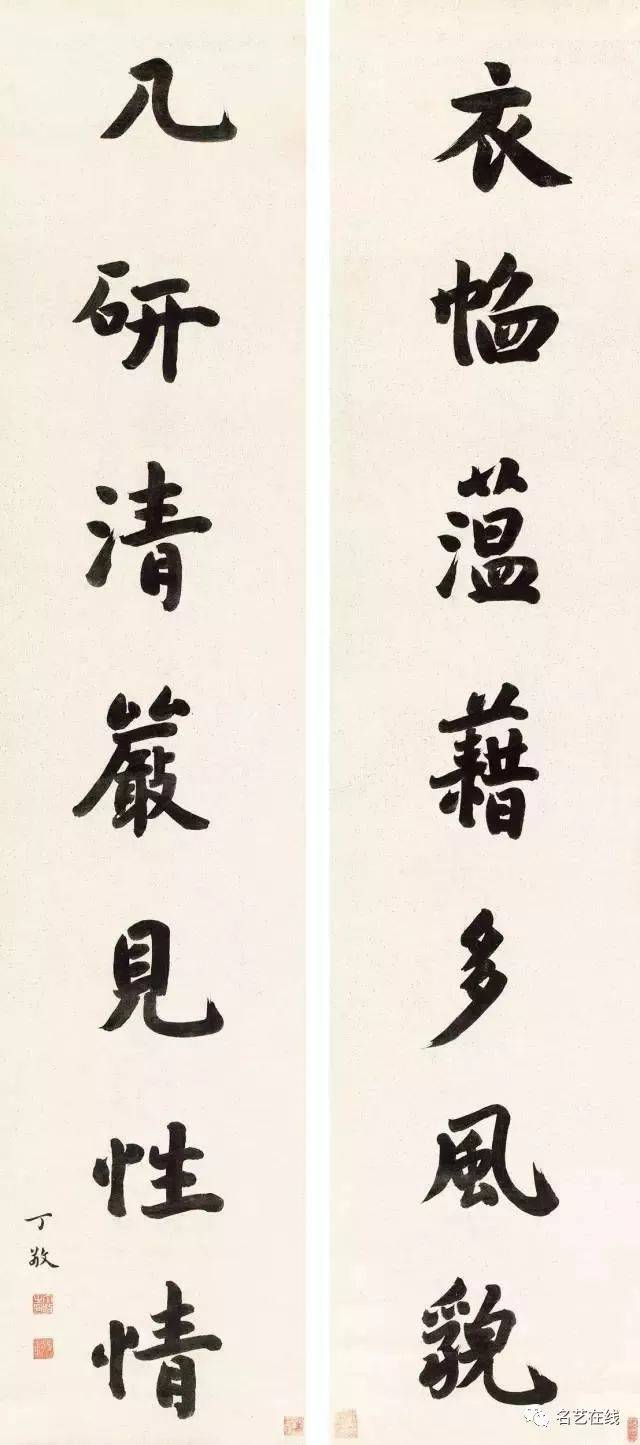 衣蕰藉多風貌
几研清嚴見性情
丁敬
名艺在线